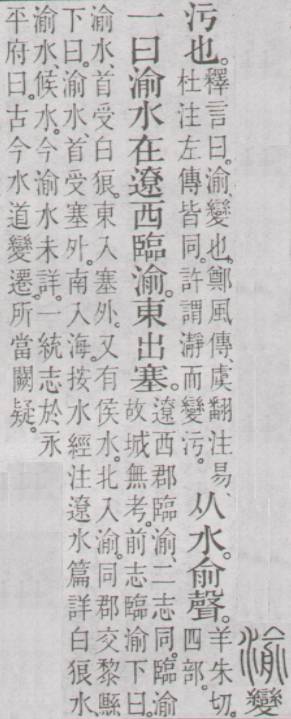 渝 變
污也。釋言曰。渝、變也。鄭風傳、虞翻注易、
杜注左傳皆同。許謂瀞而變污。从水。俞聲。羊朱切。
四部。
一曰渝水在遼西臨渝。東出塞。遼西郡臨渝、二志同。臨渝
故城無考。前志臨渝下曰。
渝水、首受白狼。東入塞外。又有侯水、北入渝。同郡交黎縣
下曰。渝水、首受塞外。南入海。按水經注遼水篇詳白狼水、
渝水、候水。今渝水未詳。一統志於永
平府曰。古今水道變遷。所當闕疑。